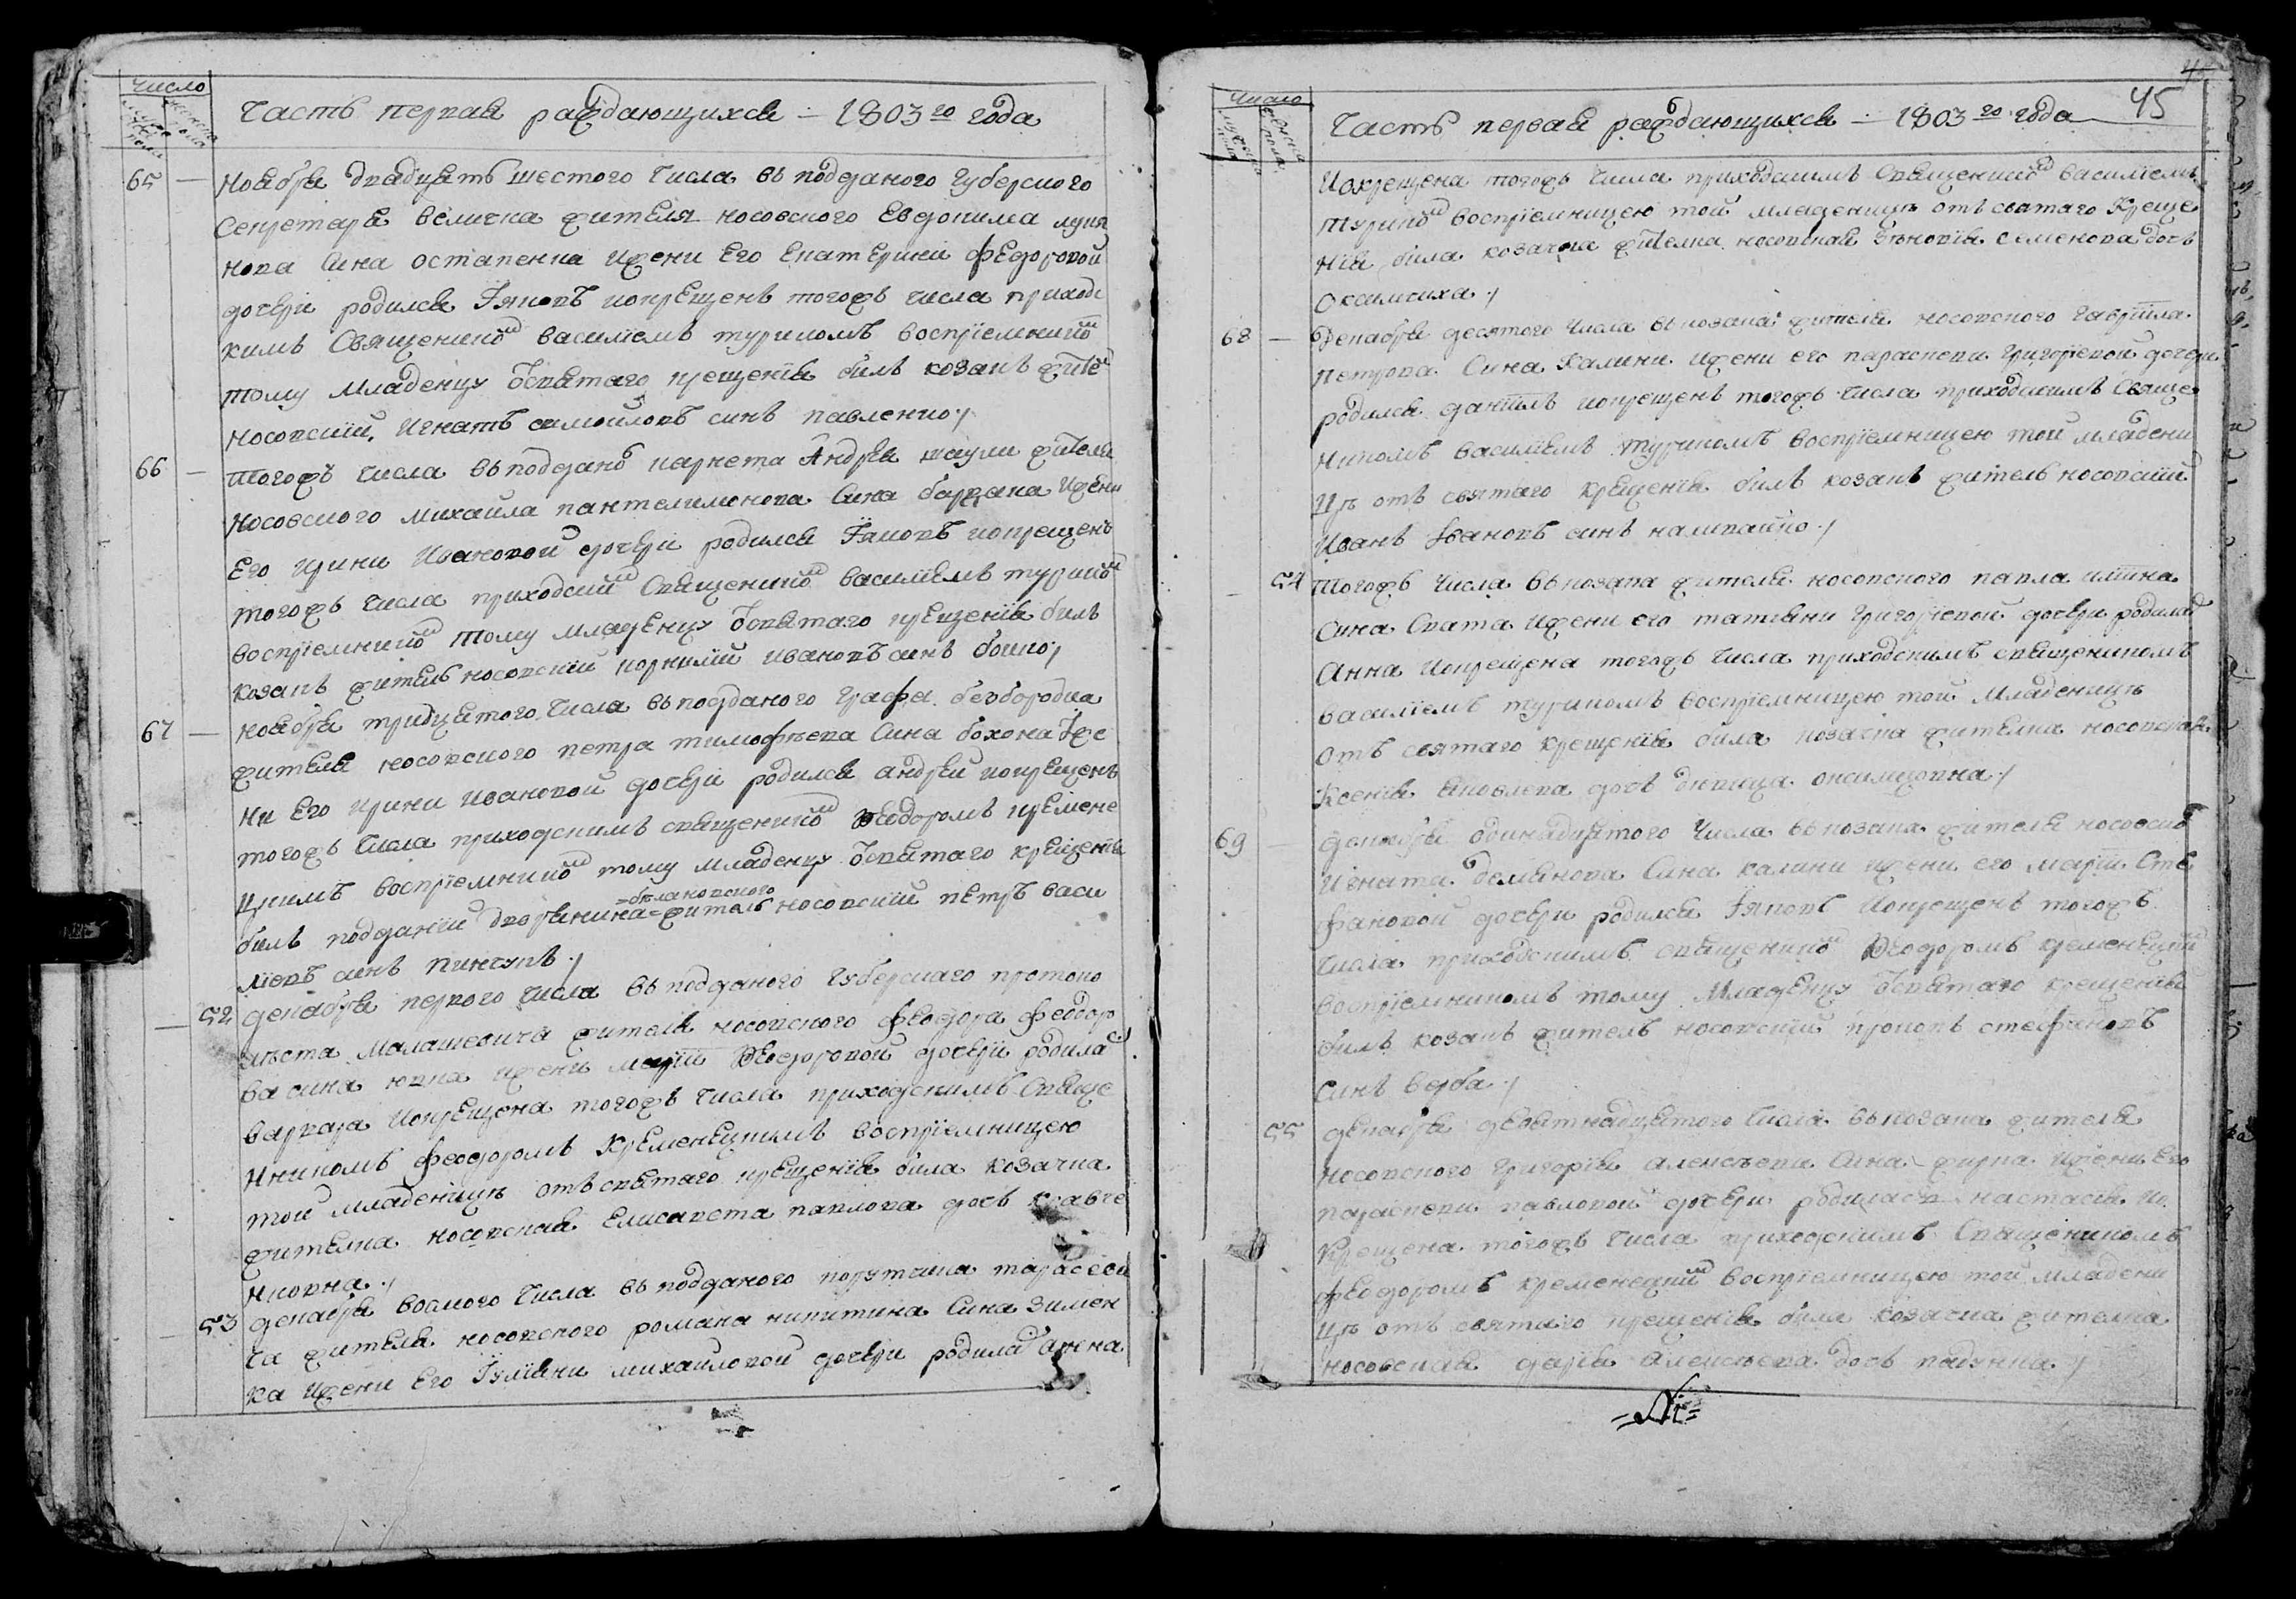 Число
Часть первая раждающихся – 1803го года
65 — Ноября двадцать шестого числа въ подданого Губерского
Секретаря величка жителя носовского Евдокима лукя
нова сина остапенка ижени Его Екатерини федоровой
дочери родился Іяковъ икрещенъ тогожъ числа приходс
кимъ Священико василіемъ турикомъ восприемнико
тому Младенцу ѿсвятаго крещенія билъ козакъ жите
Носовскій, Игнатъ самойловъ синъ павленко
66 — Тогожъ числа въ подданого корнета Андрея жителя
Носовского михаила пантелимонова Сина ижени
Его Ирини Ивановой дочери родился Іаковъ икрещенъ
тогожъ числа приходскимъ Священико василіемъ турико
восприемнико тому младенцу ѿсвятаго крещенія билъ
козакъ житель носовскій корнилій ивановъ синъ бойко
67 — ноября тридцятого числа въ подданого графа безбородка
жителя носовского петра тимофѣева Сина бохона ѿже
ни Его ирини ивановой дочери родился андрей икрещенъ
тогожъ числа приходскимъ священико Феодоромъ кремене
цкимъ восприемнико тому младенцу ѿсвятаго крещенія
билъ подданій дворянина житель носовскій петръ васи
ліевъ синъ пинчукъ
— 52 декабря первого числа въ подданого Губерскаго протоко
листа Малашевича жителя носовского феодора феодор
ва сина ижени маріи Феодоровой дочери родила
варвара икрещена тогожъ числа приходскимъ Свяще
никомъ феодоромъ Кременецкимъ восприемницею
той младеницѣ отъ святаго крещенія била козачка
жителка носовская Елисавета павлова дочь кравче
нковна
— 53 декабря восмого числа въ подданого порутчика тарасеви
ча жителя носовского романа никитина Сина зимен
ка ижени Его Іуліяни михайловой дочери родила анна
Число
Часть первая раждающихся – 1803го года 45
Икрещена тогожъ числа приходскимъ Священико василіемъ
турико восприемницею той младеницѣ отъ святаго Креще
нія била козачка жителка носовская зѣновія семенова дочъ
Оксимчиха
68 — Декабря десятого числа въ козака жителя носовского Гавріила
Петрова Сина Калини ижени его параскеви Григоріевой дочери
родился даніилъ икрещенъ тогожъ числа приходскимъ Свяще
никомъ василіемъ турикомъ восприемницею той младени
цѣ отъ святаго крещенія билъ козакъ житель носовскій
Иванъ Івановъ синъ
— 54 Тогожъ числа въ козака жителя носовского павла иліина
Сина Свата ижени его татіяни григоріевой дочери родила
Анна икрещена тогожъ числа приходскимъ священикомъ
василіемъ турикомъ восприемницею той младеницѣ
отъ святаго крещенія била козачка жителка носовская
Ксенія яковлева дочъ дѣвица оксимцовна
69 — декабря одинадцятого числа въ козака жителя носовско
Игната демянова Сина калини ижени его маріи Сте
фановой дочери родился Іяковъ икрещенъ тогожъ
числа приходскимъ священико Феодоромъ кременецки
восприемникомъ тому Младенцу ѿсвятаго крещенія
билъ козакъ житель носовскій прокопъ стефановъ
синъ верба
55 декабря девятнадцятого числа въ козака жителя
носовского григорія алексѣева Сина ижени Его
параскеви павловой дочери родилась настасія и
крещена тогожъ числа приходскимъ Священикомъ
феодоромъ кременецки восприемницею той младени
цѣ отъ святаго крещенія била козачка жителка
носовская дарія алексѣева дочъ